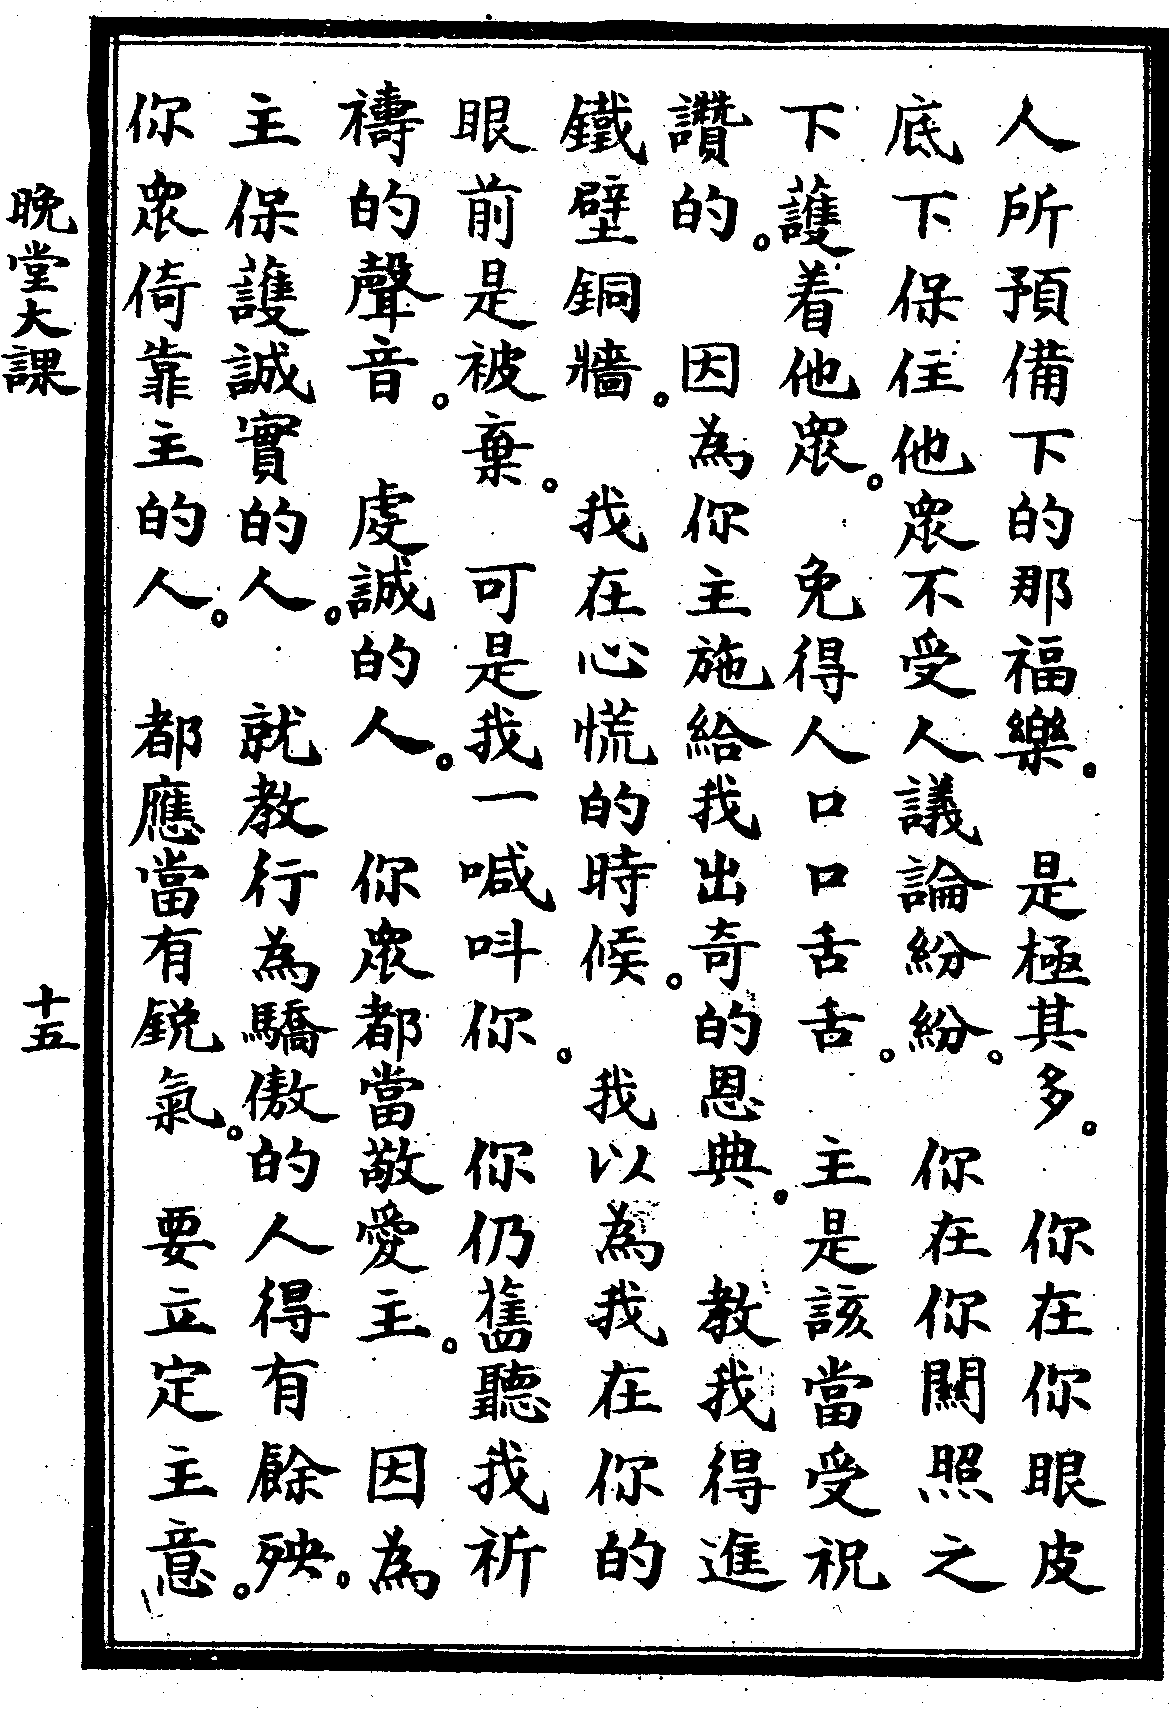 人所預備下的那福樂。是極其多。你在你眼皮
底下保住他眾不受人議論紛紛。你在你關照之
下護着他眾。免得人口口舌舌。主是該當受祝
讚的。因為你主施給我出奇的恩典。教我得進
鐵壁銅牆。我在心慌的時候。我以為我在你的
眼前是被棄。可是我一喊呌你。你仍舊聽我祈
禱的聲音。虔誠的人。你眾都當敬愛主。因為
主保護誠實的人。就教行為驕傲的人得有餘殃。
你眾倚靠主的人。都應當有銳氣。要立定主意。
晚堂大課
十五